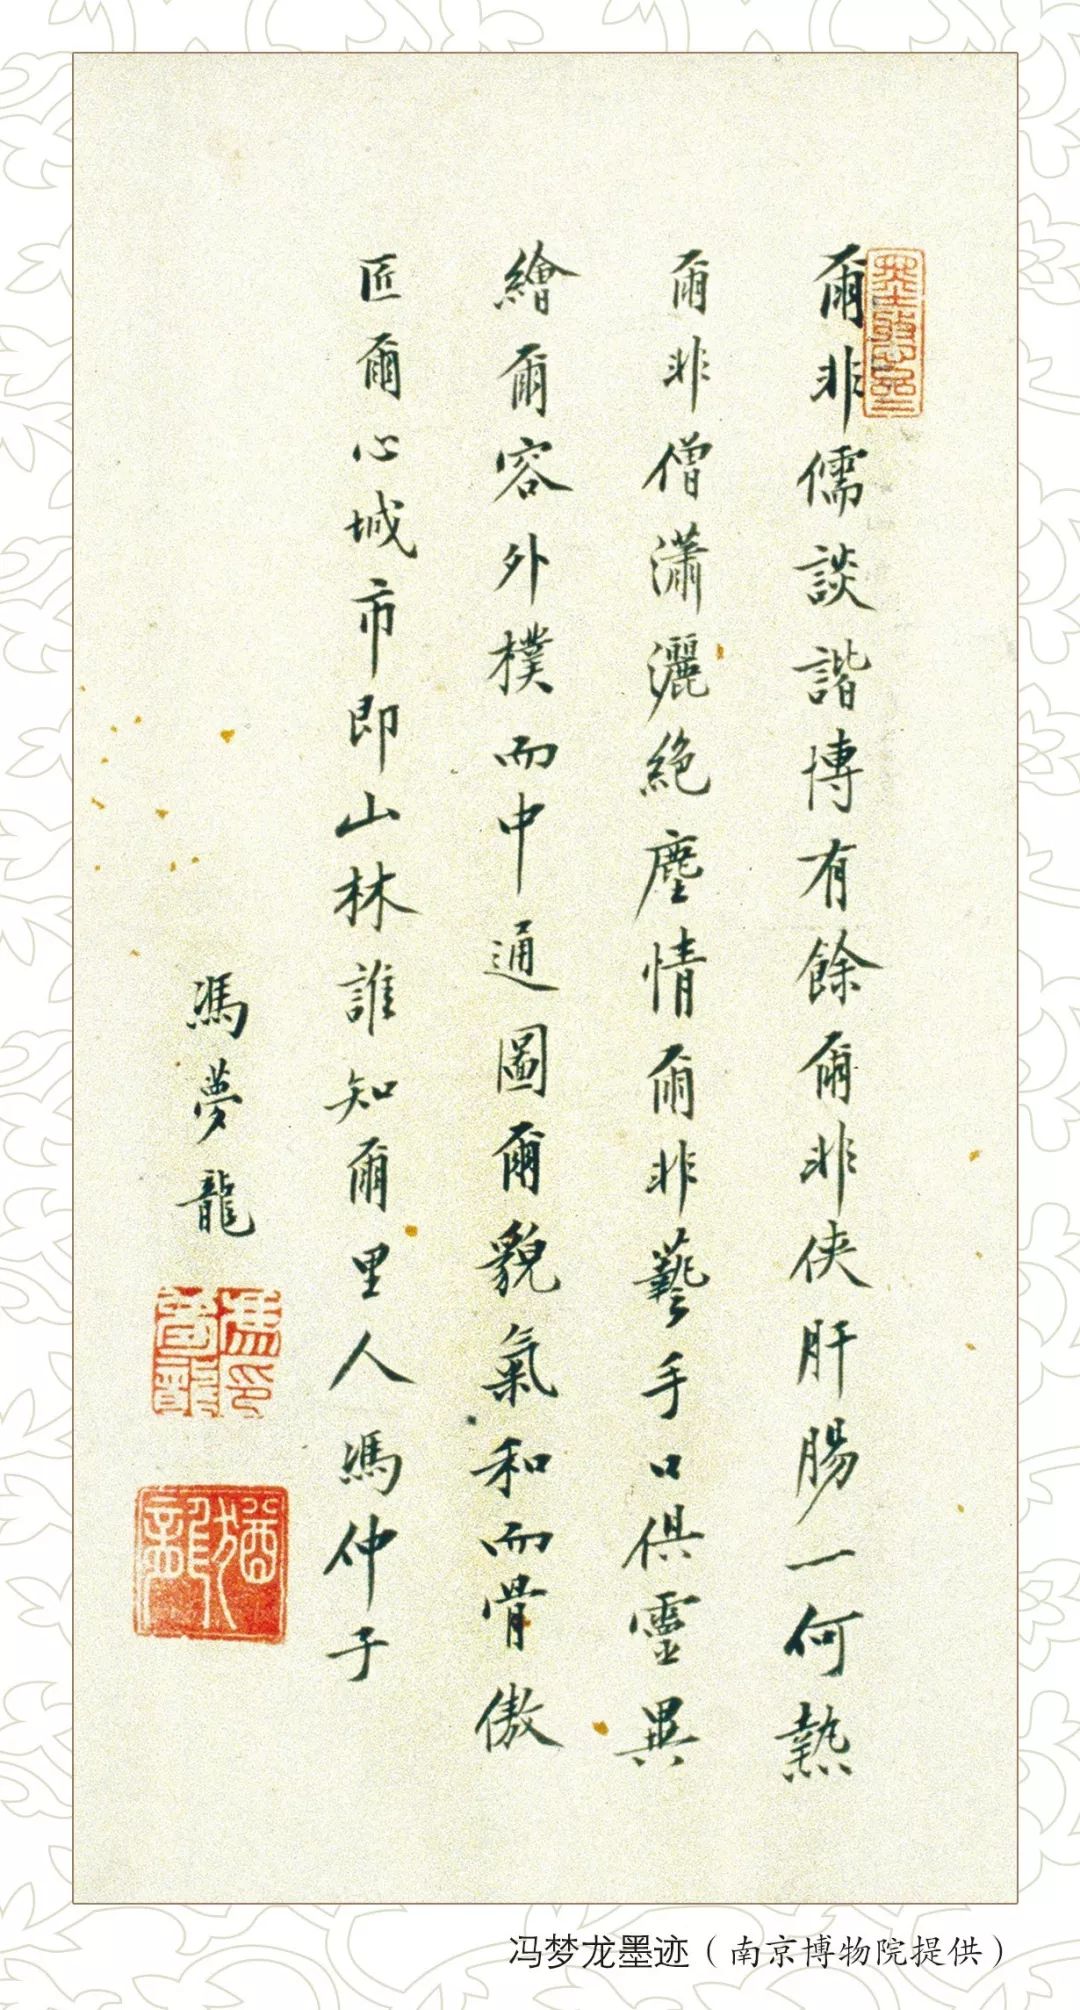 爾非儒談諧博有餘爾非俠肝腸一何熱
爾非僧瀟灑絶塵情爾非藝手口俱靈異
繪爾容外樸而中通圖爾貌氣和而骨傲
匠爾心城市即山林誰知爾里人馮仲子
馮夢龍
馮夢龍印
猶龍
冯梦龙墨迹（南京博物院提供）